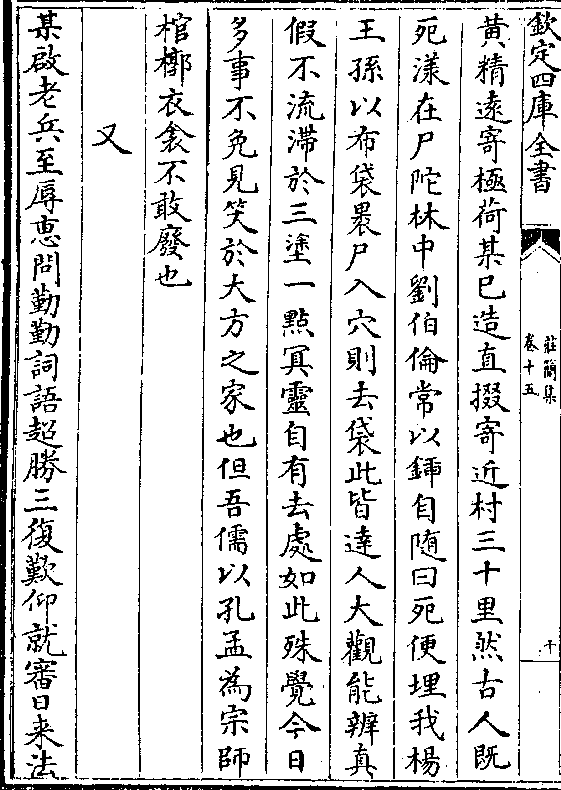 欽定四庫全書
莊簡集
卷十五
十
黄精遠寄極荷某已造直掇寄近村三十里然古人既
死漾在尸陀林中劉伯倫常以鍤自随曰死便埋我楊
王孫以布袋裹尸入穴則去袋此皆達人大觀能辨真
假不流滞於三塗一點冥靈自有去處如此殊覺今日
多事不免見笑於大方之家也但吾儒以孔孟為宗師
棺槨衣衾不敢廢也
又
某啟老兵至辱惠問勤勤詞語超勝三復歎仰就審日来法